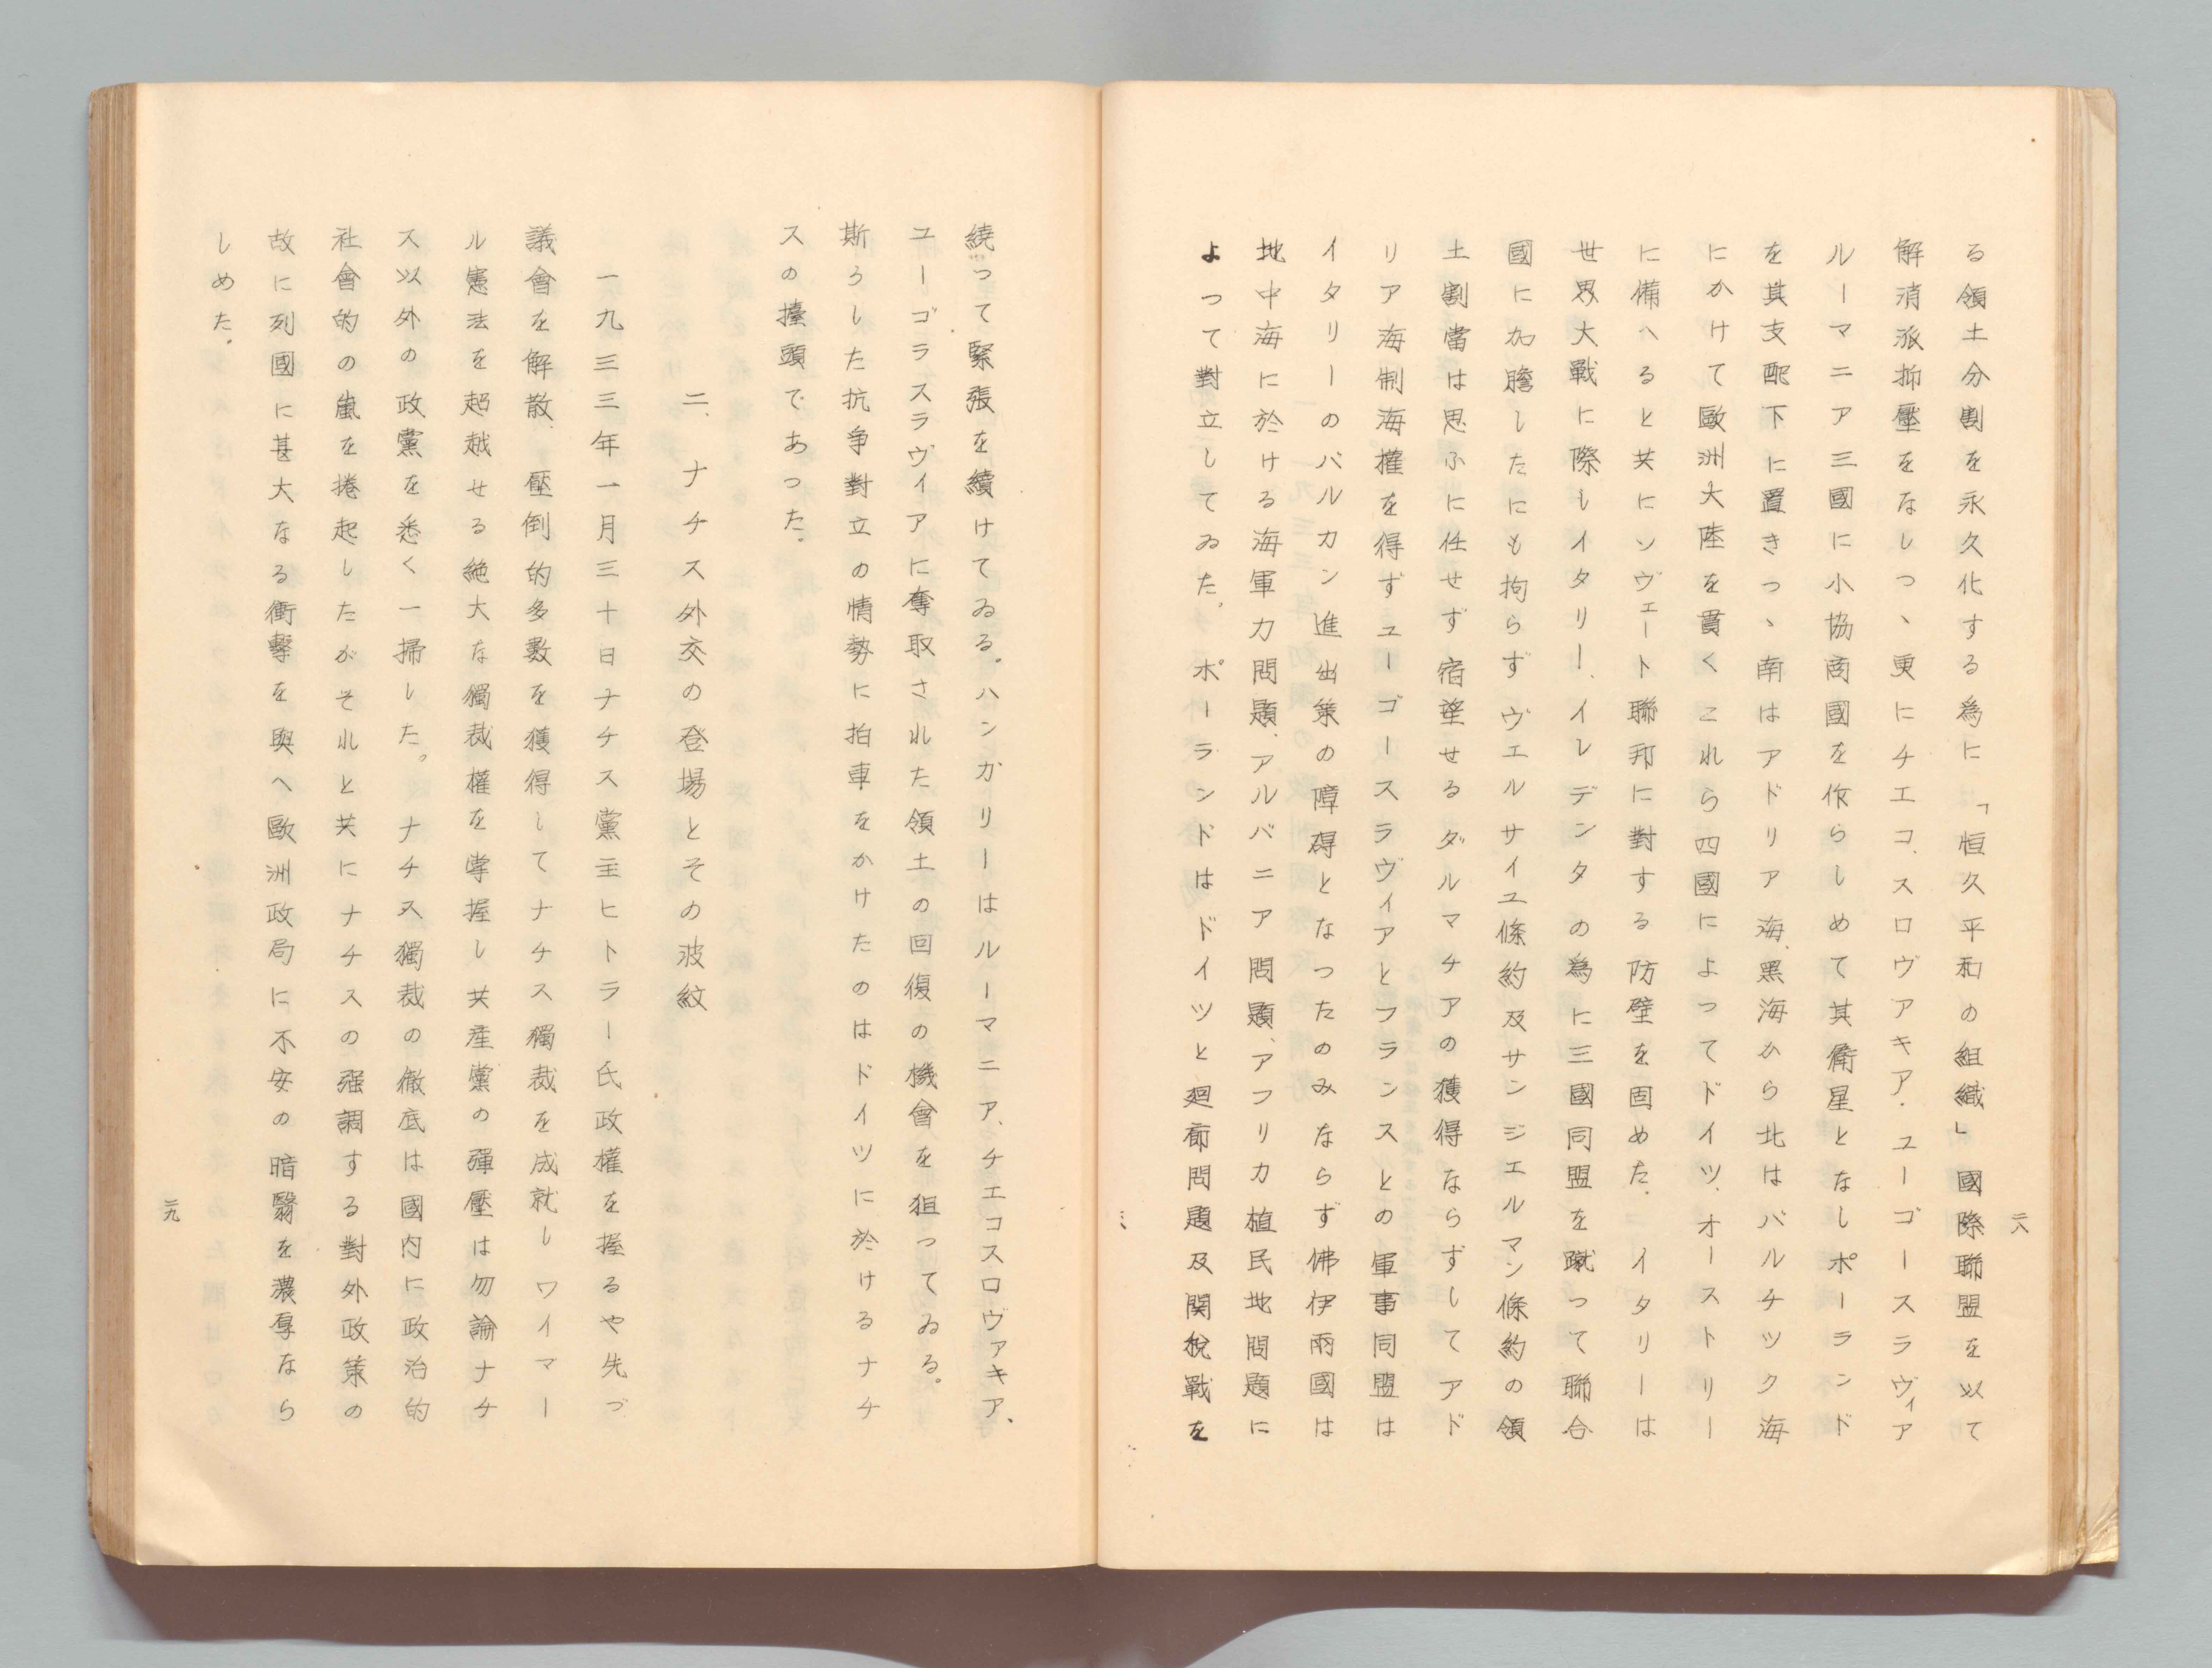 る領土分割を永久化する為に「恒久平和の組織」國際聯盟を以て
解消派抑壓をなしつゝ更にチエコ、スロヴアキア・ユーゴースラヴィア
ルーマニア三國に小協商國を作らしめて其衞星となしポーランド
を其支配下に置きつゝ南はアドリア海、黑海から北はバルチック海
にかけて歐洲大陸を貫くこれら四國によってドイツ、オーストリー
に備へると共にソヴェート聯邦に對する防壁を固めた。イタリーは
世界大戰に際しイタリー、イレデンタの為に三國同盟を蹴って聯合
國に加膽したにも拘らずヴエルサイユ條約及サンジエルマン條約の領
土割當は思ふに任せず宿望せるダルマチアの獲得ならずしてアド
リア海制海權を得ずユーゴースラヴィアとフランスとの軍事同盟は
イタリーのバルカン進出策の障碍となつたのみならず佛伊兩國は
地中海に於ける海軍力問題、アルバニア問題、アフリカ植民地問題に
よつて對立してゐた。ポーランドはドイツと廻廊問題及関稅戰を
二八
繞って緊張を續けてゐる。ハンガリーはルーマニア、チエコスロヴァキア、
ユーゴラスラヴィアに奪取された領土の回復の機會を狙ってゐる。
斯うした抗争對立の情勢に拍車をかけたのはドイツに於けるナチ
スの擡頭であつた。
二、ナチス外交の登場とその波紋
一九三三年一月三十日ナチス黨主ヒトラー氏政權を握るや先づ
議會を解散、壓倒的多數を獲得してナチス獨裁を成就しワイマー
ル憲法を超越せる絶大な獨裁權を掌握し共産黨の彈壓は勿論ナチ
ス以外の政黨を悉く一掃した。ナチス獨裁の徹底は國内に政治的
社會的の嵐を捲起したがそれと共にナチスの强調する對外政策の
故に列國に甚大なる衝擊を與へ歐洲政局に不安の暗翳を濃厚なら
しめた。
二九